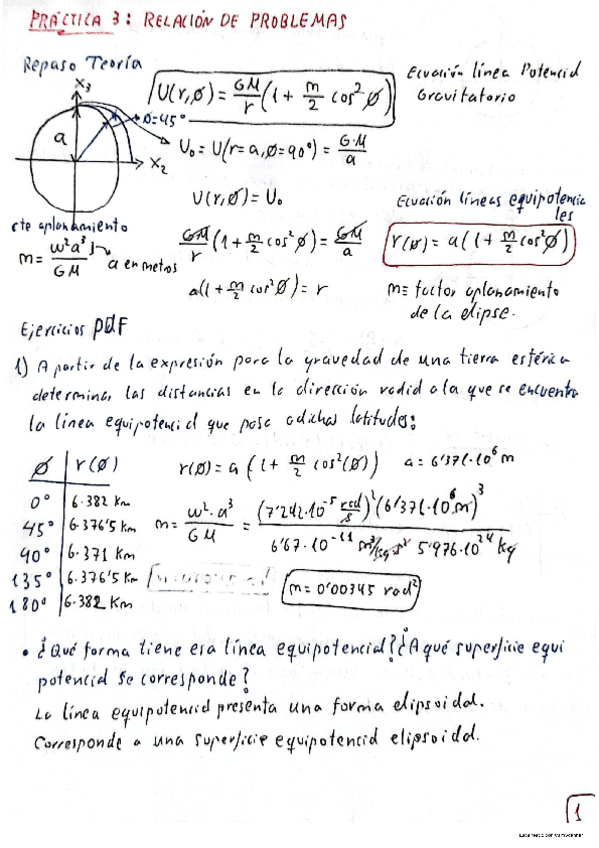 PRÁCTICA 3: RELACIÓN DE PROBLEMAS
Repaso Teoría
X₃
a
Ø=45°
X₂
U(r,Ø) = GM/r (1 + m/2 cos²Ø)
Ecuación línea Potencial
Gravitatorio
U₀ = U(r=a, Ø=90°) = G·M/a
U(r,Ø) = U₀
Ecuación líneas equipotencia
les
cte aplanamiento
m = w²a³/GM
a en metros
GM/r (1 + m/2 cos²Ø) = GM/a
r(Ø) = a(1 + m/2 cos²Ø)
a(1 + m/2 cos²Ø) = r
m ≡ factor aplanamiento
de la elipse.
Ejercicios PDF
1) A partir de la expresión para la gravedad de una tierra esférica
determina, las distancias en la dirección radial a la que se encuentra
la línea equipotencial que pasa a dichas latitudes:
Ø | r(Ø)
0° | 6.382 Km
45° | 6.376'5 Km
90° | 6.371 Km
135° | 6.376'5 Km
180° | 6.382 Km
r(Ø) = a (1 + m/2 cos²(Ø)) a = 6'371·10⁶ m
m = w²·a³/GM = (7'242·10⁻⁵ rad/s)²(6'371·10⁶ m)³ / 6'67·10⁻¹¹ m³/kg·s² 5'976·10²⁴ kg
m = 0'00345 rad²
• ¿Qué forma tiene esa línea equipotencial? ¿A qué superficie equi
potencial se corresponde?
La línea equipotencial presenta una forma elipsoidal.
Corresponde a una superficie equipotencial elipsoidal.
1